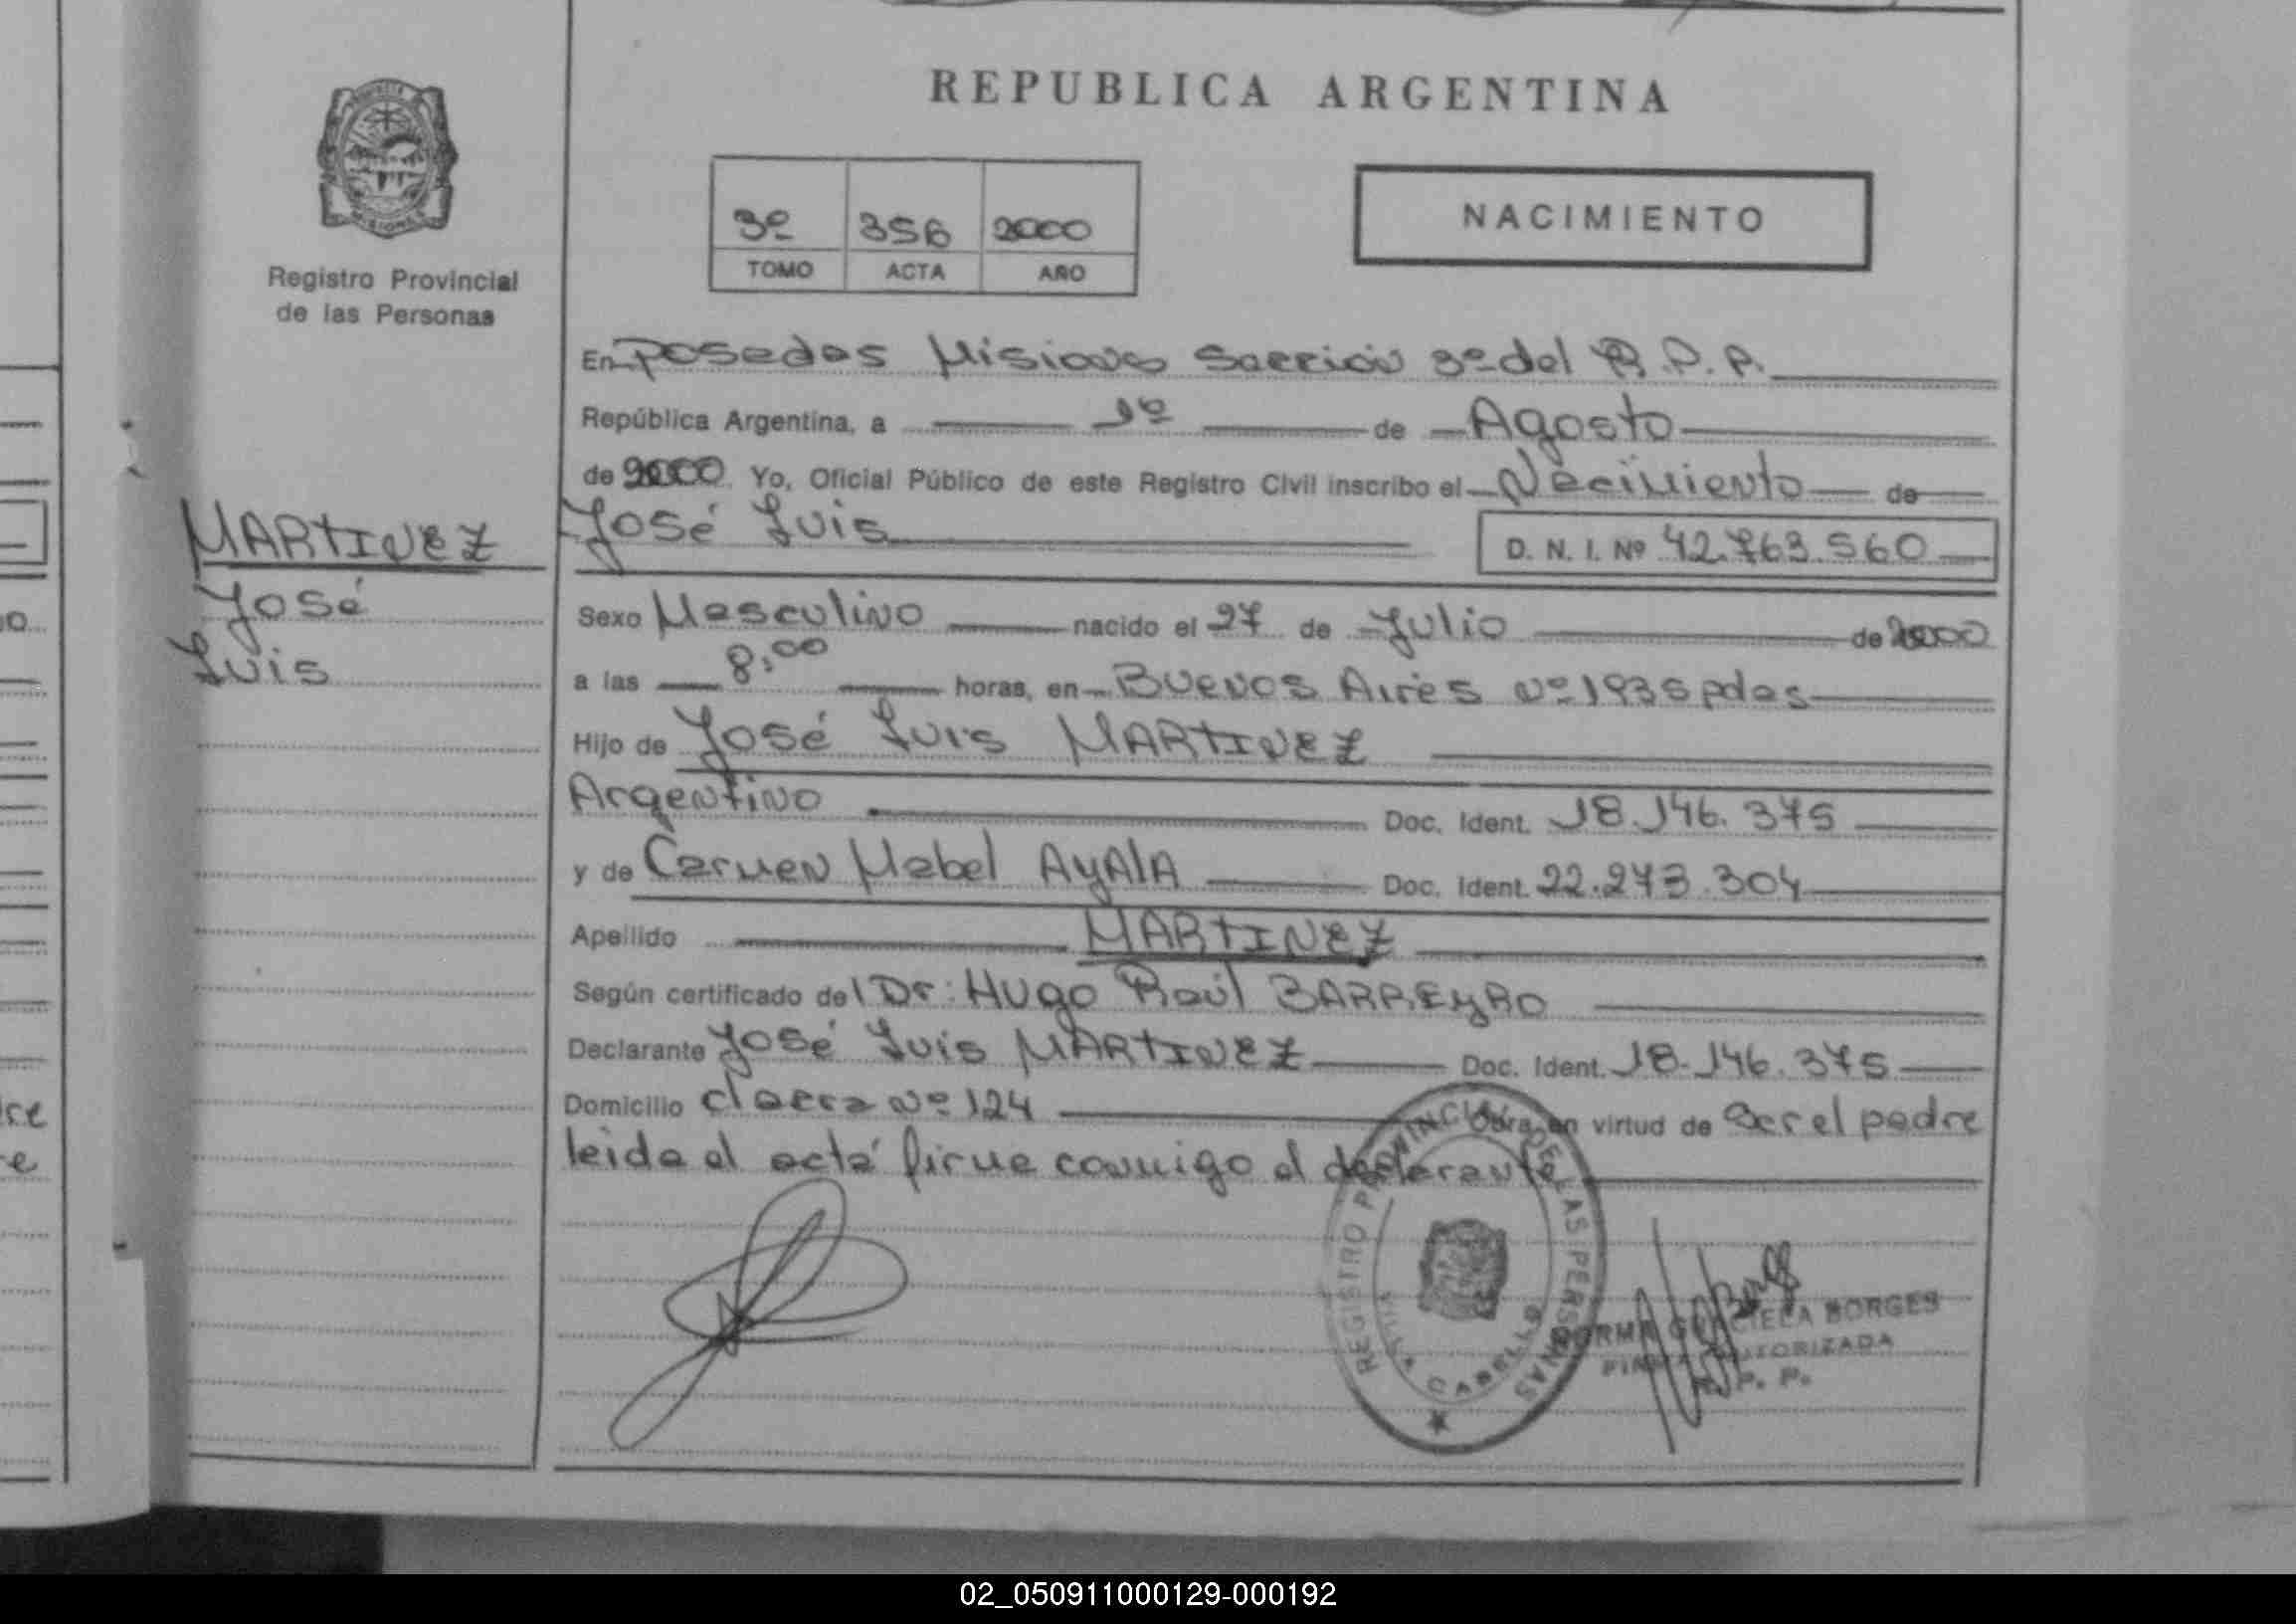 REPUBLICA ARGENTINA
Registro Provincial
de las Personas
3º 356 2000
TOMO ACTA AÑO
NACIMIENTO
En Posadas Misiones Sección 3º del R.P.P.
República Argentina, a 1º de Agosto
de 2000 Yo, Oficial Público de este Registro Civil inscribo el Nacimiento de
José Luis D. N. I. Nº 42.763.560
MARTINEZ
José
Luis
Sexo Masculino nacido el 27 de Julio de 2000
a las 8,00 horas, en Buenos Aires Nº 1935 pdas
Hijo de José Luis MARTINEZ
Argentino Doc. Ident. 18.146.375
y de Carmen Mabel AyAlA Doc. Ident. 22.273.304
Apellido MARTINEZ
Según certificado del Dr: Hugo Raúl BARREyRO
Declarante José Luis MARTINEZ Doc. Ident. 18.146.375
Domicilio Nº 124 Obra en virtud de Ser el padre
leida el acta firma conmigo el declarante
REGISTRO PROVINCIAL DE LAS PERSONAS
VILLA CABELLO
NORMA GRACIELA BORGES
FIRMA AUTORIZADA
R. P. P.
02_050911000129-000192